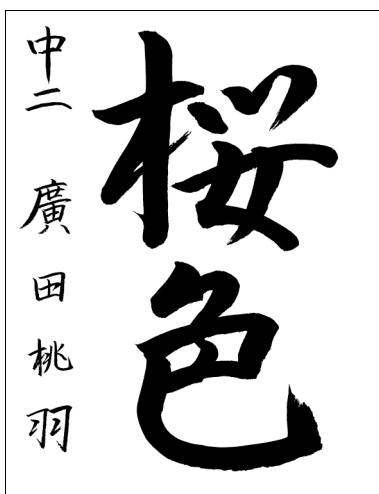 桜色
中二 廣田桃羽